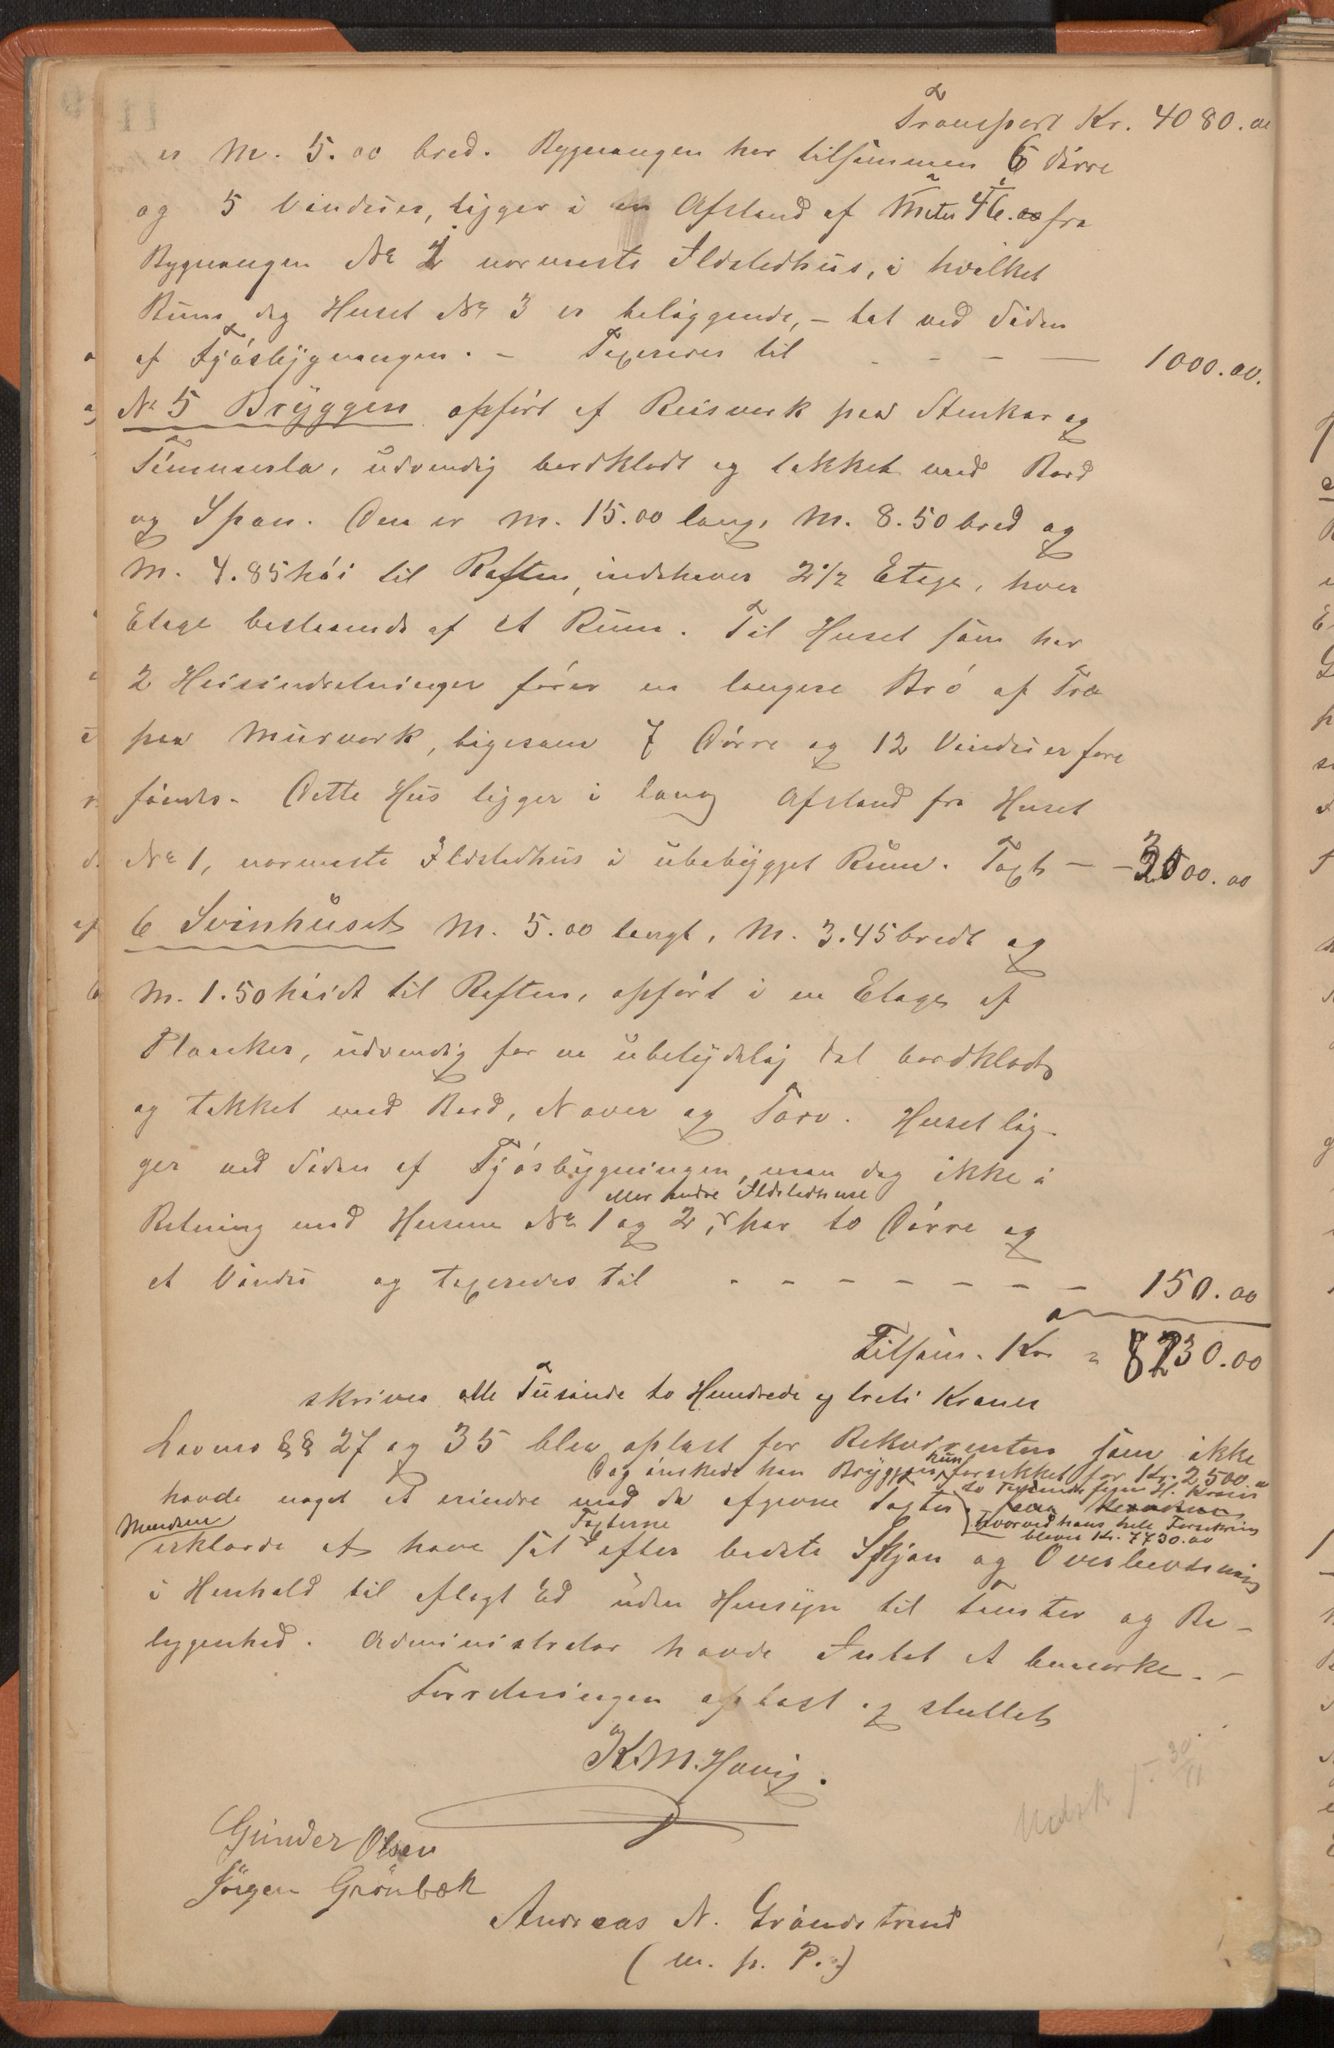 Transport Kr. 4080.00
er M. 5.00 bred. Bygnangen har tilsammen 6 Dørre
og 5 Vinduer, ligger i en Afstand af Meter 46.00 fra
Bygnangen No 1 nærmeste Ildstedhus, i hvilket
Rum og Huset No 3 er beliggende, – tæt ved Siden
af Fjøsbygnangen. – Taxeres til – – – – 1000.00.
No 5 Bryggen opført af Reisverk paa Stenkar og
Tømmerla, udvendig bordklædt og tækket med Bord
og Spon. Den er M. 15.00 lang, M. 8.50 bred og
M. 4.85 høi til Raften, indehaver 2 1/2 Etage, hver
Etage bestaaende af et Rum. Til Huset som har
2 Heisindretninger fører en længere Bro af Træ
paa Murverk, ligesom 7 Dørre og 12 Vinduer fore
findes. Dette Hus ligger i lang Afstand fra Huset
No 1, nærmeste Ildstedhus i ubebygget Rum. Taxt – – 3000.00
6 Svinhuset M. 5.00 langt, M. 3.45 bredt og
M. 1.50 høidt til Raften, opført i en Etage af
Planker, udvendig for en ubetydelig Del bordklædt
og tækket med Bord, Næver og Torv. Huset lig-
ger ved Siden af Fjøsbygningen, men dog ikke i
eller andre Ildstedhuse
Retning med Husene No 1 og 2, har to Dørre og
et Vindu og taxeredes til – – – – – – – 150.00
Tilsam. Kr = 8230.00
skriver otte Tusinde to Hundrede og treti Kroner
Lovens §§ 27 og 35 blev oplæst for Rekvirenten som ikke
Dog ønskede han Bryggen kun forsikket for Kr. 2500.00
to Tusinde fem H. Kroner
havde noget at erindre med de afgivne Taxter
hvorved hans hele Forsikring
bliver Kr. 7730.00
Mændene Taxterne
erklærde at have sat efter bedste Skjøn og Overbevisning
i Henhold til aflagt Ed uden Hensyn til Tomter og Be-
lygenhed. Administrator havde Intet at bemærke. –
Forretningen oplæst og sluttet
K. M. Havig.
Gunder Olsen
Jörgen Grönbæk
Andreas N. Gröndstrand
(m. p. P.)
30/11